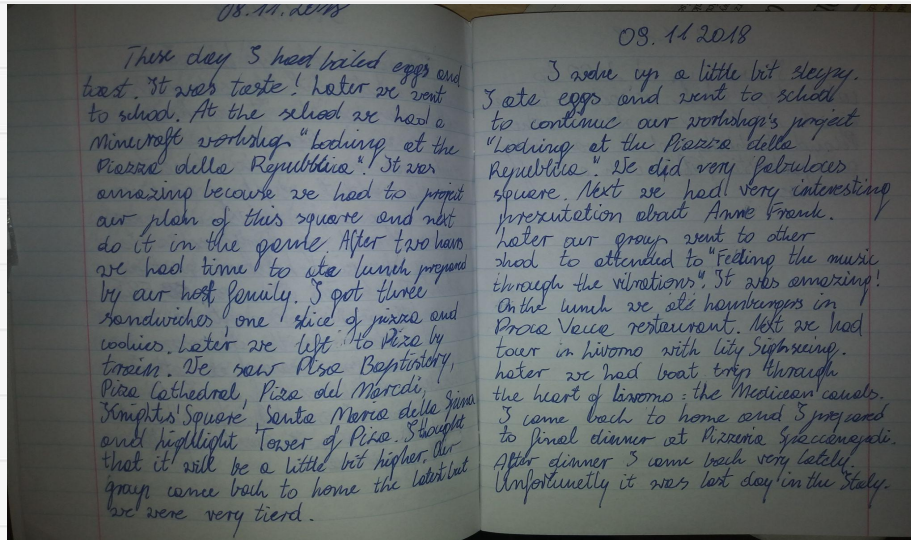 08.11.2018
These day I had boiled eggs and
toast. It was taste! Later we went
to school. At the school we had a
Minecraft workshop "Looking at the
Piazza della Repubblica". It was
amazing because we had to project
our plan of this square and next
do it in the game. After two hours
we had time to ate lunch prepared
by our host family. I got three
sandwiches, one slice of pizza and
cookies. Later we left to Piza by
train. We saw Pisa Baptistery,
Piza Cathedral, Piza del Marcdi,
Knights' Square Santa Maria della Spina
and highlight Tower of Piza. I thought
that it will be a little bit higher. Our
group came back to home the latest but
we were very tierd.
09.11.2018
I woke up a little bit sleepy.
I ate eggs and went to school
to continue our workshop's project
"Looking at the Piazza della
Republica". We did very fabulous
square. Next we had very interesting
prezentation about Anne Frank.
Later our group went to other
shool to attended to "Feeling the music
through the vibrations". It was amazing!
On the lunch we ate hamburgers in
Proca Vacca restaurant. Next we had
tour in Livorno with City Sighseeing.
Later we had boat trip through
the heart of Livorno: the Medicean canals.
I came back to home and I prepared
to final dinner at Pizzeria
After dinner I came back very lately.
Unfortunetly it was last day in the Italy.